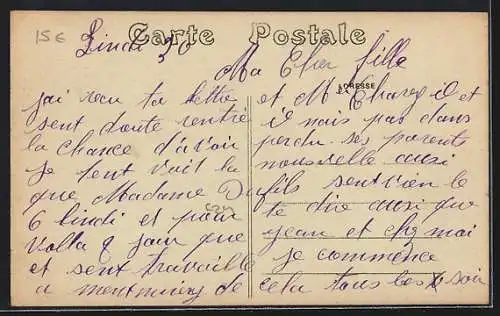 15 €
Carte Postale
Lindi 30
Ma Cher fille
ADRESSE
jai recu ta lettre
sent doute rentre
la chance d'avoir
je tent voit la
que Madame
6 lindi et pour
voila 8 jour que
et sent travaille
a de
et M
il nais pas dans
perdu ses parents
nouvelle ausi
fils sent vien le
te dire ausi que
jean et chez moi
je commence
cela tous les soir